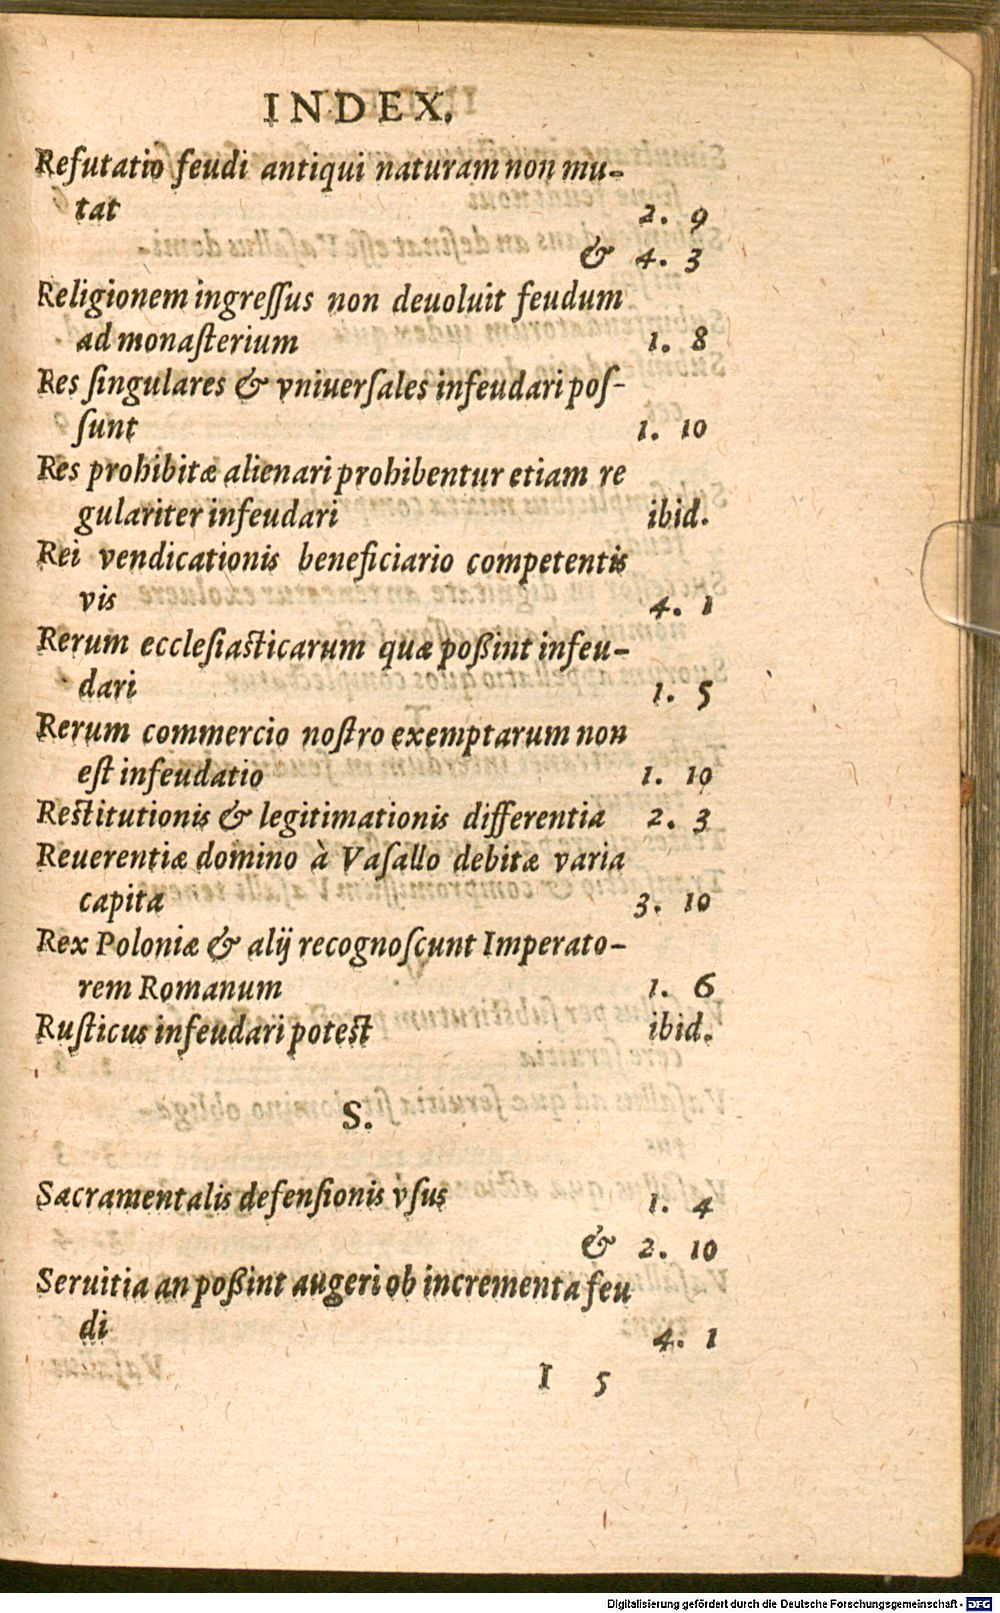 INDEX.
Refutatio feudi antiqui naturam non mu-
tat 2. 9
& 4. 3
Religionem ingreſſus non deuoluit feudum
ad monaſterium 1. 8
Res ſingulares & vniuerſales infeudari poſ-
ſunt 1. 10
Res prohibitæ alienari prohibentur etiam re
gulariter infeudari ibid.
Rei vendicationis beneficiario competentis
vis 4. 1
Rerum eccleſiaſticarum quæ poßint infeu-
dari 1. 5
Rerum commercio noſtro exemptarum non
eſt infeudatio 1. 10
Reſtitutionis & legitimationis differentia 2. 3
Reuerentiæ domino à Vaſallo debitæ varia
capita 3. 10
Rex Poloniæ & alij recognoſcunt Imperato-
rem Romanum 1. 6
Ruſticus infeudari poteſt ibid.
S.
Sacramentalis defenſionis vſus 1. 4
& 2. 10
Seruitia an poßint augeri ob incrementa feu
di 4. 1
I 5
Digitalisierung gefördert durch die Deutsche Forschungsgemeinschaft - DFG